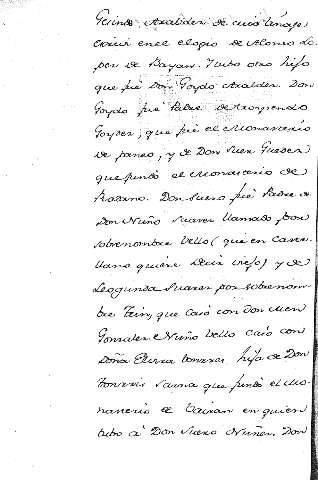 Guindo Araldez de cuio linaje
escriví en el elogio de Alonso Lo
pez de Bayan. Tubo otro hijo
que fue Don Goydo Araldez. Don
Goydo fue Padre de
Goyder, que fue el Monasterio
de panzo, y de Don Suer Guedez
que fundó el Monasterio de
Don Suero fue Padre de
Don Nuño Suarez llamado por
sobrenombre Vello (que en Caste
llano quiere decir viejo) y de
Leogunda Suarez por sobrenom
bre Tein, que casó con don Men
Gonzalez. Nuño Vello casó con
Doña Elvira hija de Don
que fundó el Mo
nasterio de en quien
tubo á Don Suero Nuñez. Don